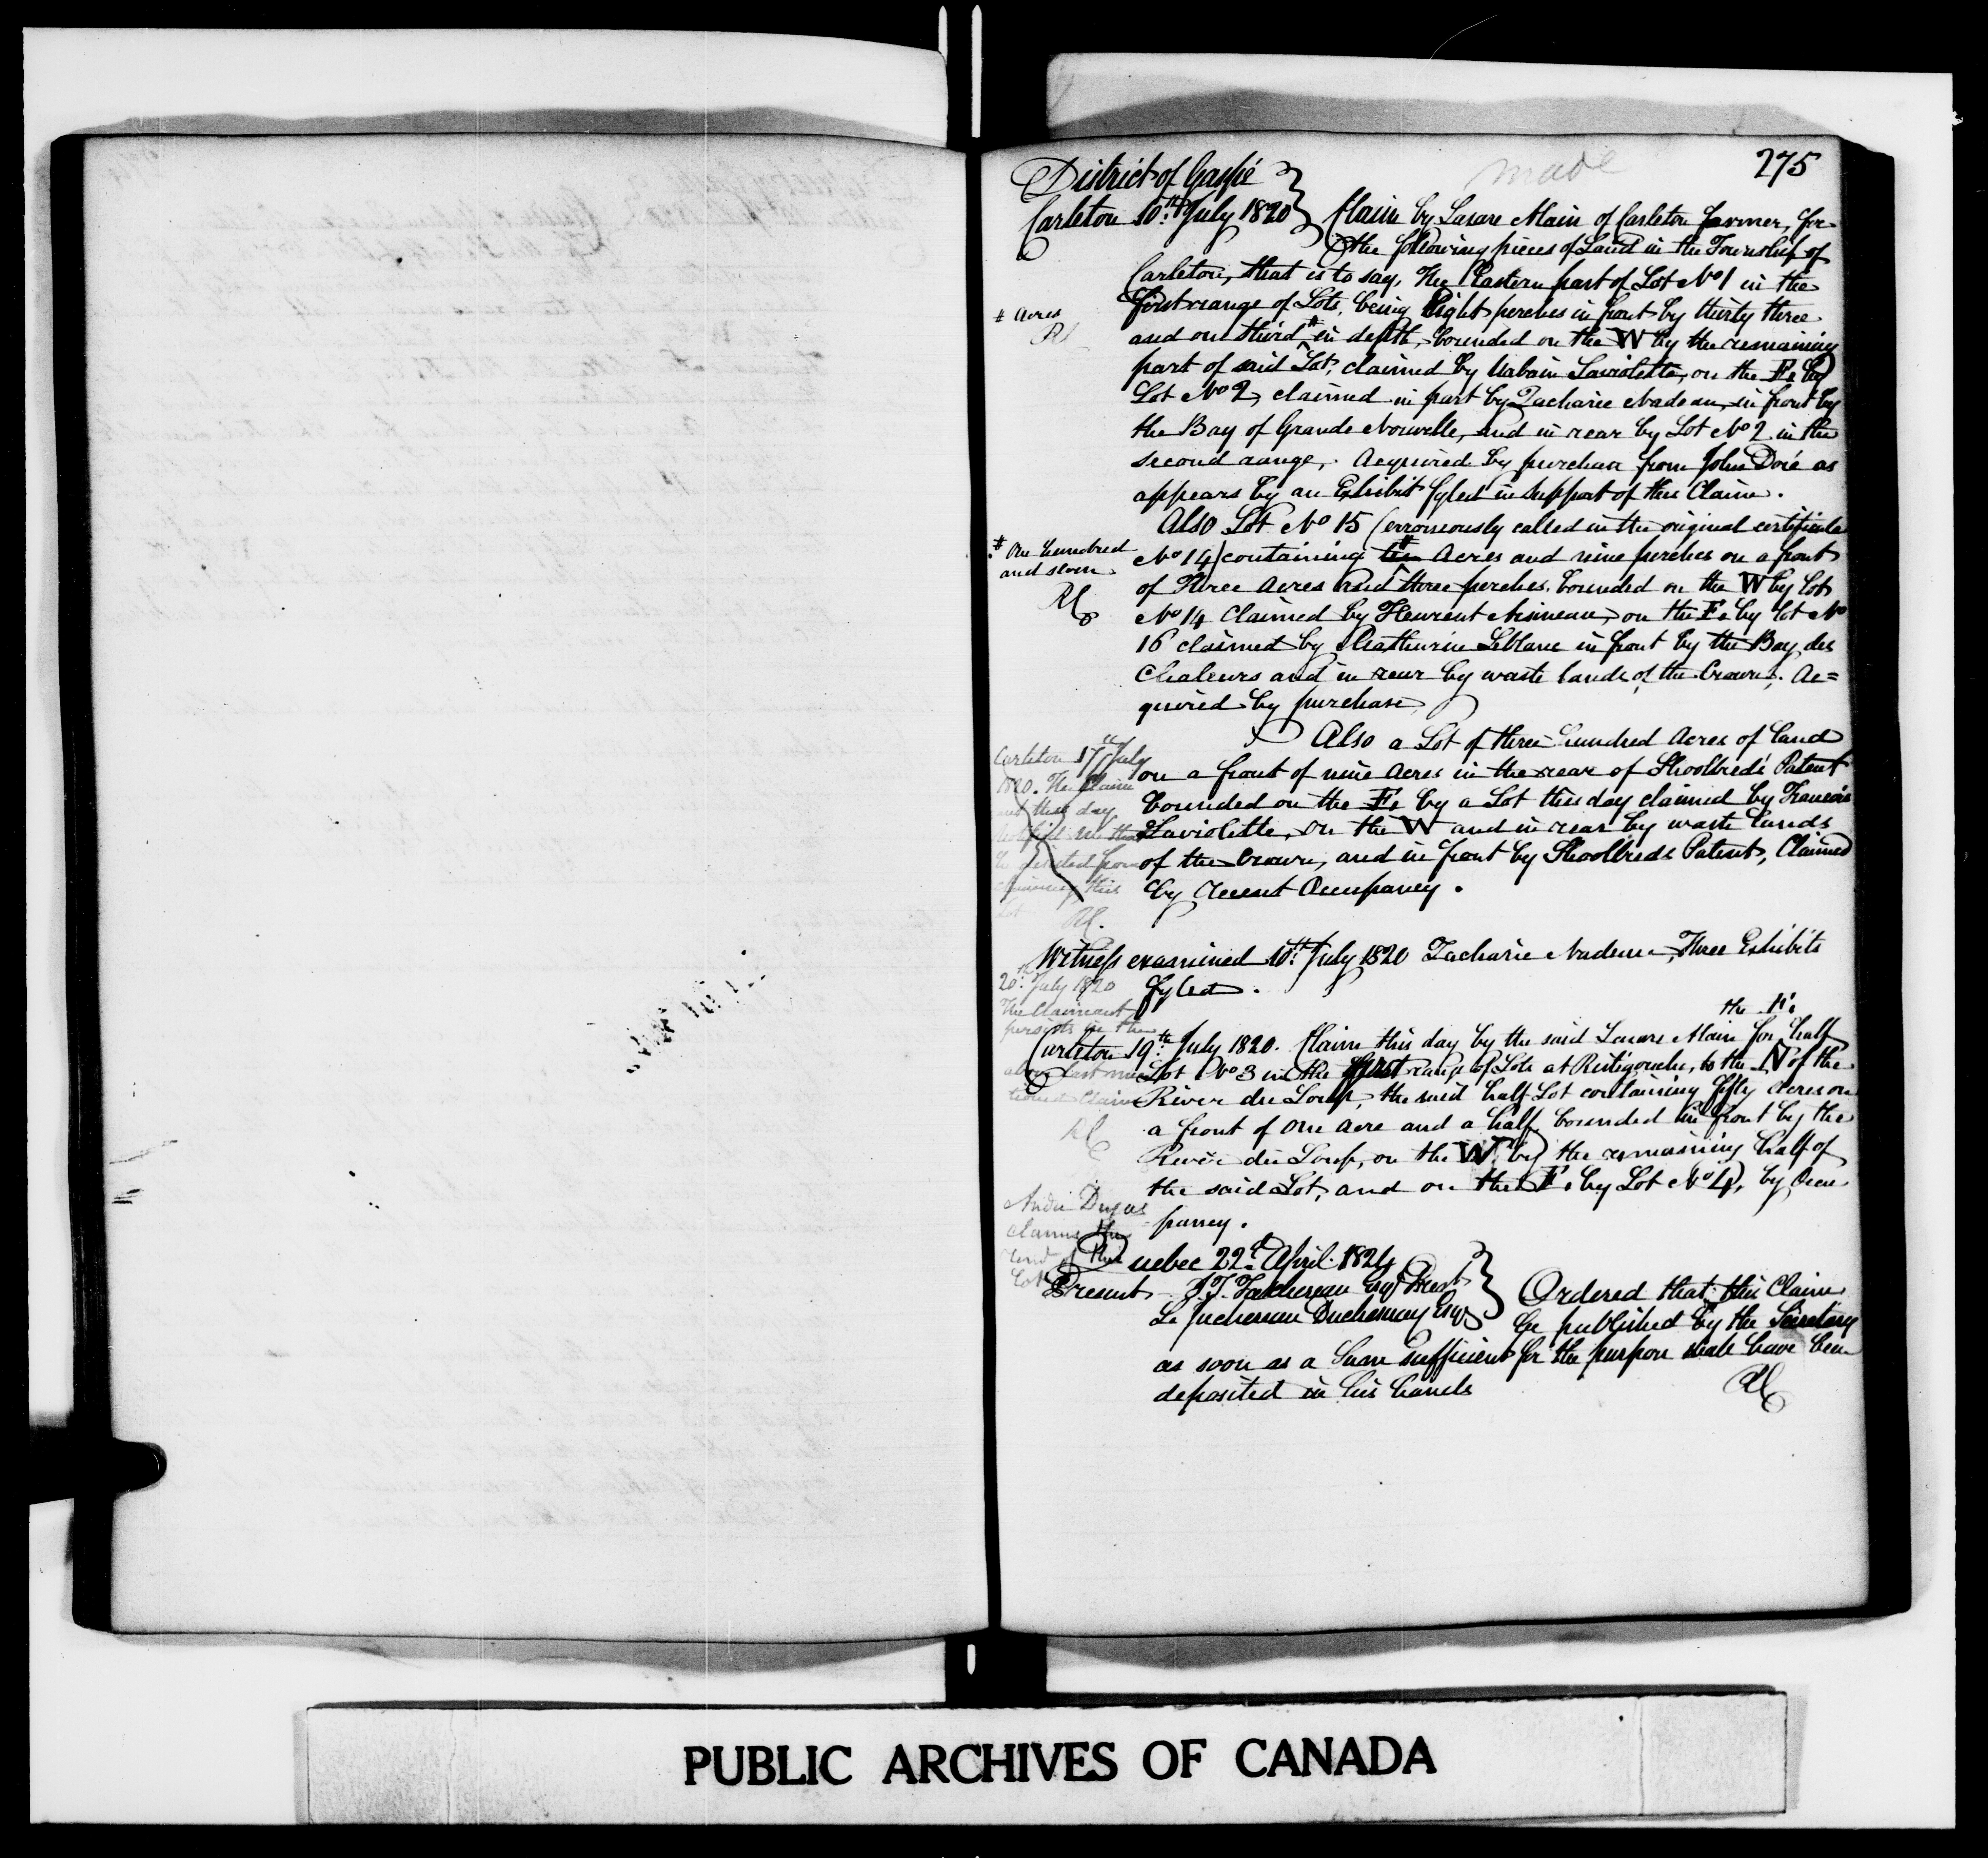 275
made
District of Gaspé
Carleton 10th July 1820 } Claim by Lazare Alain of Carleton farmer, for
the following pieces of Land in the Township of
Carleton, that is to say, The Eastern part of Lot No 1 in the
first range of Lots, being Eight perches in front by thirty three
# Acres
RC
and one third # in depth, bounded on the W by the remaining
part of said Lot, claimed by Urbain Laviolette, on the E. by
Lot No 2, claimed in part by Zacharie Nadeau, in front by
the Bay of Grande Nouvelle, and in rear by Lot No 2 in the
second range, Acquired by purchase from John Doré as
appears by an Exhibit fyled in support of this Claim.
Also Lot No 15 (erroneously called in the original certificate
# One hundred
and seven
RC
No 14) containing ten # Acres and nine perches on a front
of Three Acres and three perches, bounded on the W by Lot
No 14 claimed by Fleurent on the E. by Lot No
16 claimed by Mathurin Leblanc in front by the Bay des
Chaleurs and in rear by waste lands of the Crown. Ac=
quired by purchase
Also a Lot of three hundred Acres of land
Carleton 17th July
1820. The Claim
ant this day
notified me that
he desisted from
claiming this
Lot RC.
on a front of nine Acres in the rear of Shoolbred's Patent
bounded on the E. by a Lot this day claimed by Francois
Laviolette, on the W and in rear by waste lands
of the Crown, and in front by Shoolbreds Patent, Claimed
by recent Occupancy.
Witness examined 10th July 1820 Zacharie Nadeau, Three Exhibits
fyled.
20th July 1820
The Claimant
persists in the
above last men
tioned Claim
RC
the E.
Carleton 19th July 1820. Claim this day by the said Lazare Alain for half
Lot No 3 in the first range of Lots at Ristigouche, to the N of the
River du Loup, the said half Lot containing fifty Acres on
a front of one Acre and a half, bounded in front by the
River du Loup, on the W. by the remaining half of
the said Lot, and on the E. by Lot No 4, by Occu
pancy.
André Dugas
claims the
rend of this
Lot
Quebec 22d April 1824
Present J.T. Taschereau Esqr Presdt
Le Juchereau Duchesnay Esqr } Ordered that this Claim
be published by the Secretary
as soon as a Sum sufficient for the purpose shall have been
deposited in his hands
RC
PUBLIC ARCHIVES OF CANADA